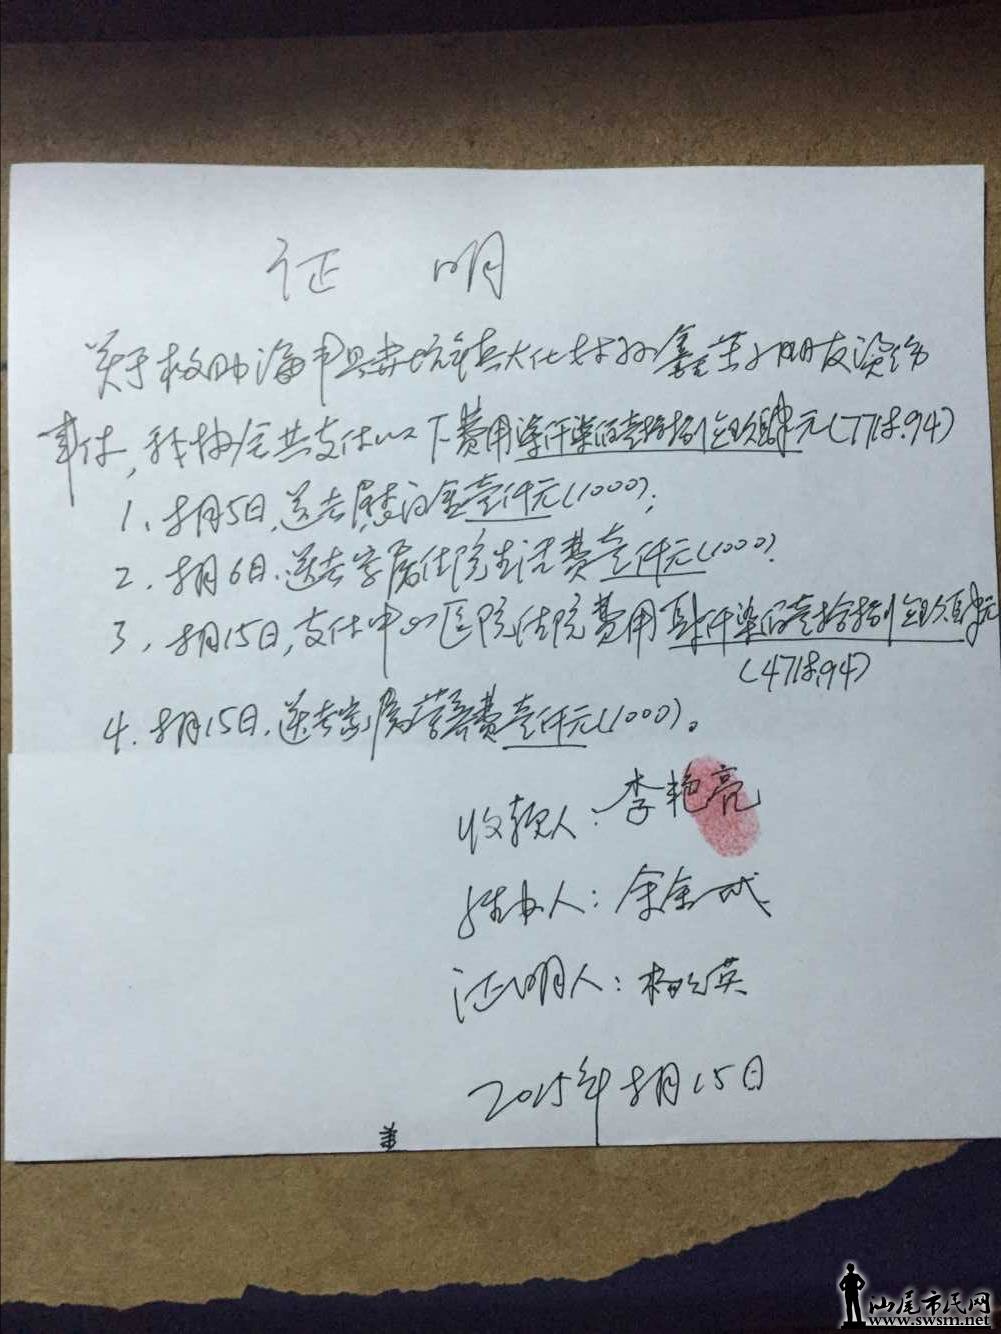 证 明
关于救助海丰县赤坑镇大化村孙鑫蕾小朋友资金
事件,我协会共支付以下费用柒仟柒佰壹拾捌元玖角肆元(7718.94)
1、8月5日,送去慰问金壹仟元(1000),
2、8月6日、送去家属住院生活费壹仟元(1000)
3、8月15日,支付中山医院住院费用肆仟柒佰壹拾捌元玖角肆元
(4718.94)
4、8月15日、送去家属营养费壹仟元(1000)。
收款人:李艳亮
经办人:余金成
证明人:杨 英
2015年8月15日
汕尾市民网
www.swsm.net